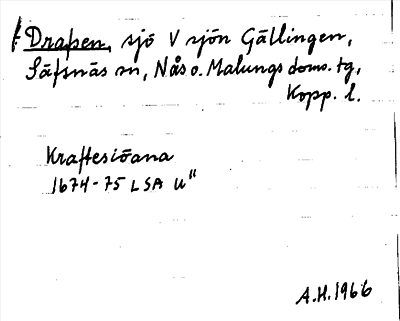 Drafsen, sjö V sjön Gällingen,
Säfsnäs sn, Nås o. Malungs doms. tg,
Kopp. l.
Kraftesiöana
1674-75 LSA U"
A.H. 1966